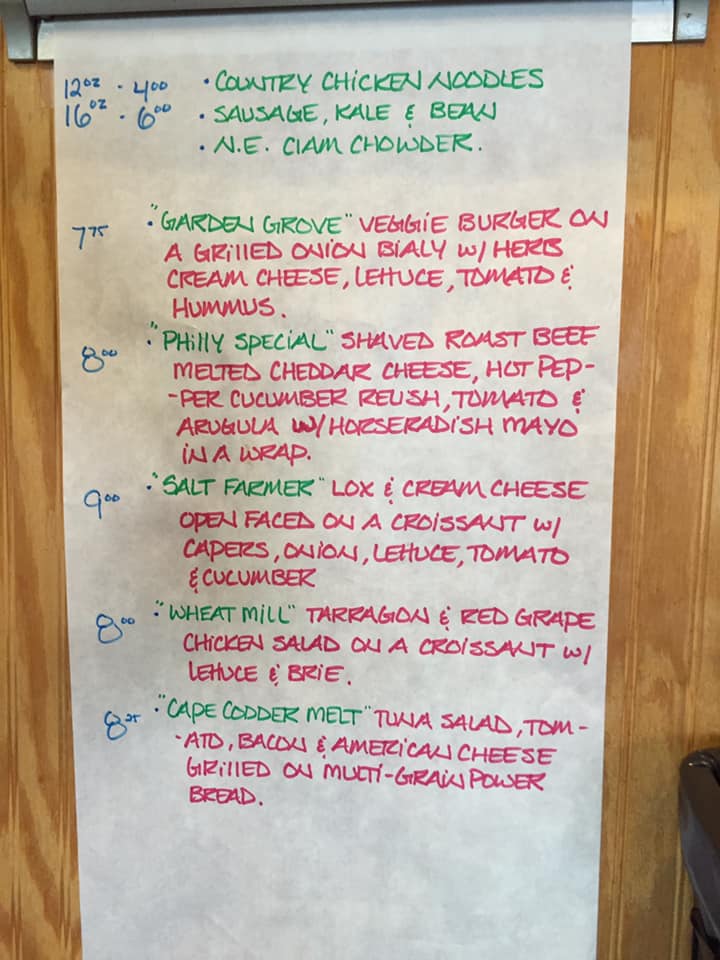 12oz · 4.00 · COUNTRY CHICKEN NOODLES
16oz · 6.00 · SAUSAGE, KALE & BEAN
· N.E. CLAM CHOWDER.
7.75 · "GARDEN GROVE" VEGGIE BURGER ON
A GRILLED ONION BIALY W/ HERB
CREAM CHEESE, LETTUCE, TOMATO &
HUMMUS.
8.00 · "PHILLY SPECIAL" SHAVED ROAST BEEF
MELTED CHEDDAR CHEESE, HOT PEP-
-PER CUCUMBER RELISH, TOMATO &
ARUGULA W/ HORSERADISH MAYO
IN A WRAP.
9.00 · "SALT FARMER" LOX & CREAM CHEESE
OPEN FACED ON A CROISSANT W/
CAPERS, ONION, LETTUCE, TOMATO
& CUCUMBER
8.00 · "WHEAT MILL" TARRAGON & RED GRAPE
CHICKEN SALAD ON A CROISSANT W/
LETTUCE & BRIE.
8.25 · "CAPE CODDER MELT" TUNA SALAD, TOM-
-ATO, BACON & AMERICAN CHEESE
GRILLED ON MULTI-GRAIN POWER
BREAD.